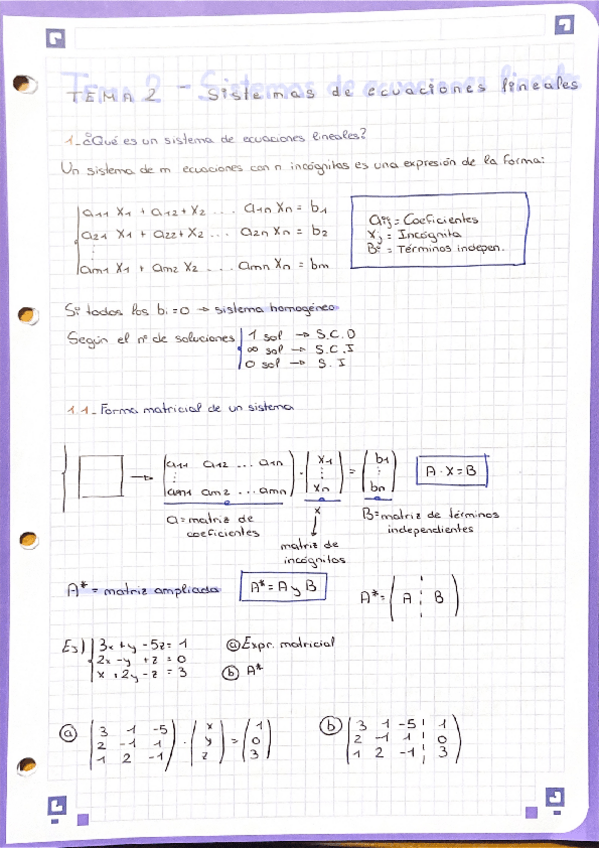 TEMA 2 - Sistemas de ecuaciones lineales
1-¿Qué es un sistema de ecuaciones lineales?
Un sistema de m ecuaciones con n incógnitas es una expresión de la forma:
a11 X1 + a12 + X2 ... a1n Xn = b1
a21 X1 + a22 + X2 ... a2n Xn = b2
⋮
am1 X1 + am2 X2 ... amn Xn = bm
aij = Coeficientes
Xj = Incógnita
Bi = Términos indepen.
Si todos los bi = 0 → sistema homogéneo
Según el nº de soluciones | 1 sol → S.C.D
∞ sol → S.C.I
0 sol → S.I
1.1- Forma matricial de un sistema
{ □ → (a11 a12 ... a1n ⋮ am1 am2 ... amn) · (x1 ⋮ xn) = (b1 ⋮ bn) A · X = B
a = matriz de coeficientes
x
↓
matriz de incógnitas
B = matriz de términos independientes
A* = matriz ampliada
A* = A y B
A* = ( A ¦ B )
Ej) 3x + y - 5z = 1
2x - y + z = 0
x + 2y - z = 3
ⓐ Expr. matricial
ⓑ A*
ⓐ (3 1 -5) (x) (1)
(2 -1 1) · (y) = (0)
(1 2 -1) (z) (3)
ⓑ (3 1 -5 ¦ 1)
(2 -1 1 ¦ 0)
(1 2 -1 ¦ 3)